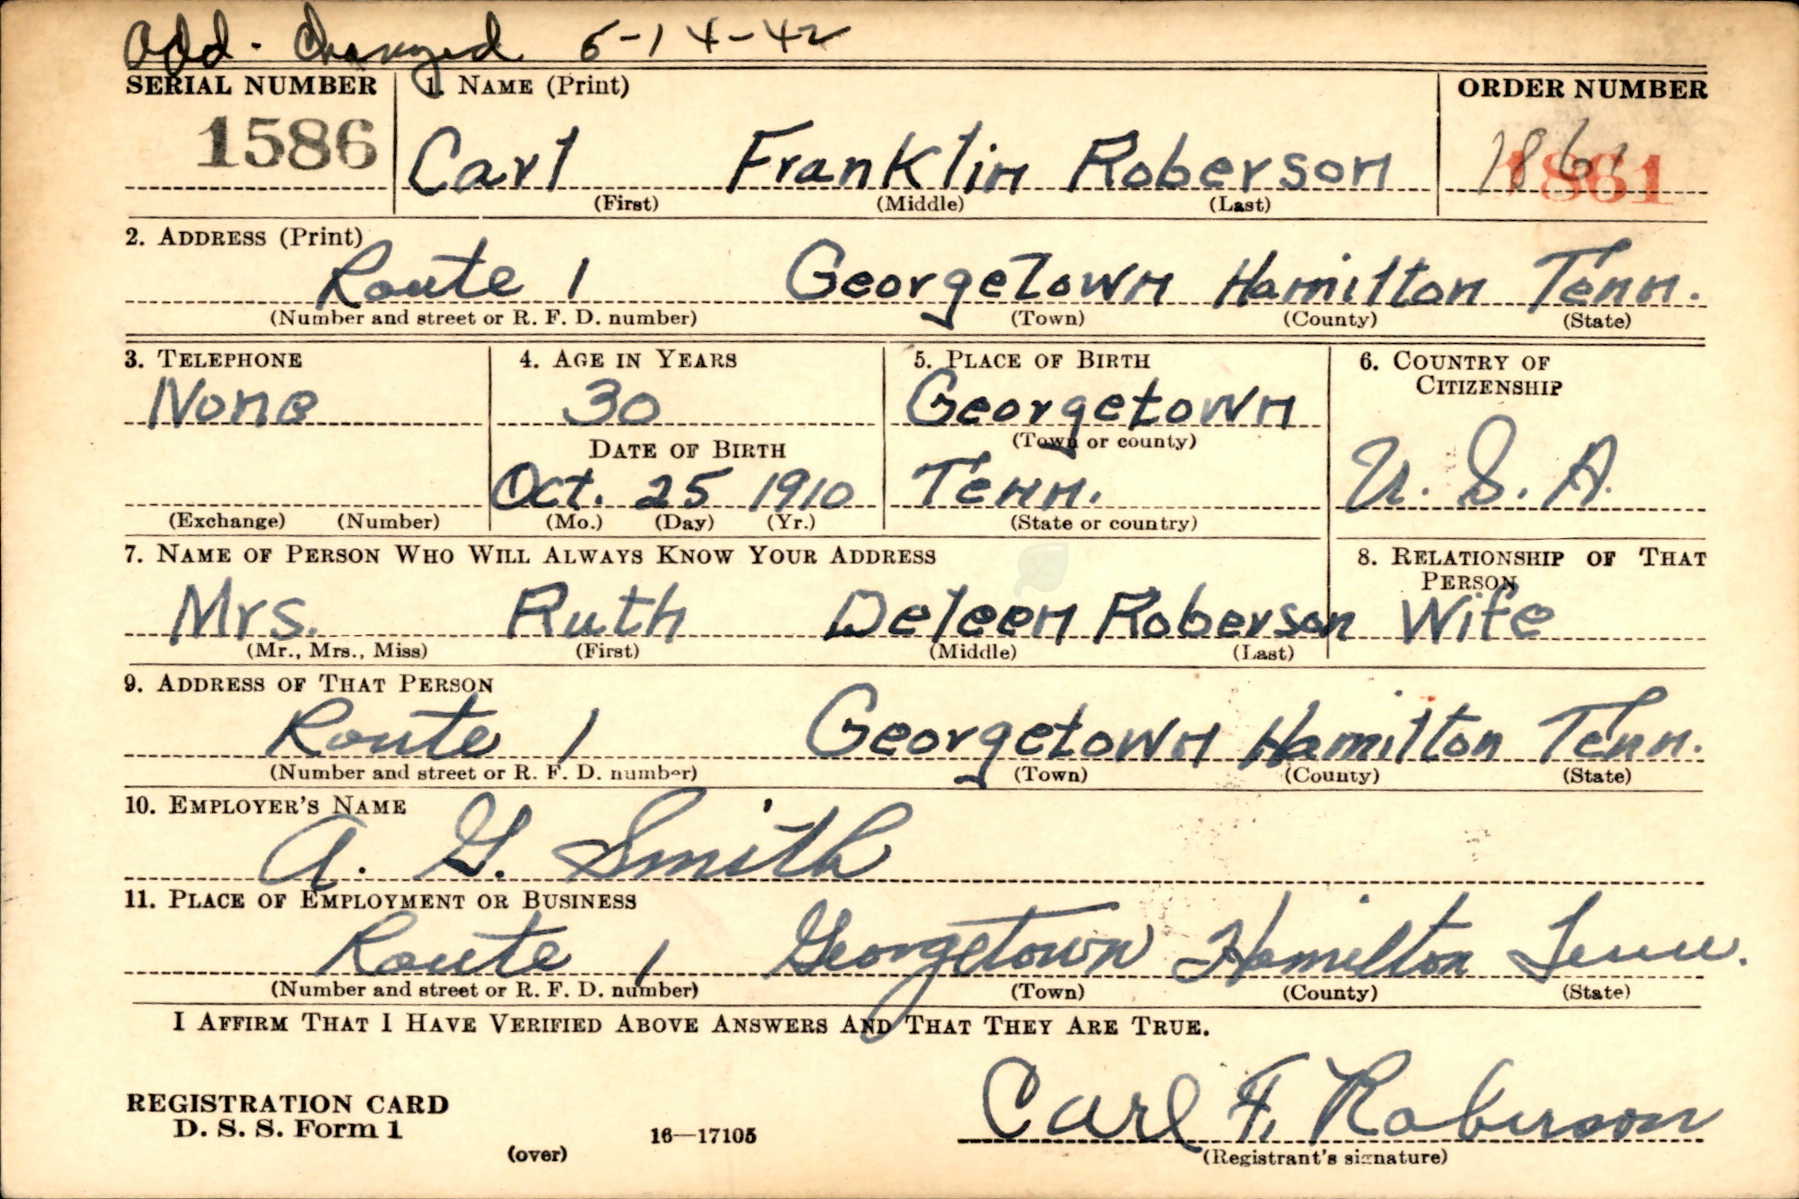 Add. Changed 5-14-42
SERIAL NUMBER 1. NAME (Print) ORDER NUMBER
1586 Carl Franklin Roberson 1861
(First) (Middle) (Last)
2. ADDRESS (Print)
Route 1 Georgetown Hamilton Tenn.
(Number and street or R. F. D. number) (Town) (County) (State)
3. TELEPHONE 4. AGE IN YEARS 5. PLACE OF BIRTH 6. COUNTRY OF
CITIZENSHIP
None 30 Georgetown
DATE OF BIRTH (Town or county)
Oct. 25 1910 Tenn. U. S. A.
(Exchange) (Number) (Mo.) (Day) (Yr.) (State or country)
7. NAME OF PERSON WHO WILL ALWAYS KNOW YOUR ADDRESS 8. RELATIONSHIP OF THAT
PERSON
Mrs. Ruth Deleen Roberson Wife
(Mr., Mrs., Miss) (First) (Middle) (Last)
9. ADDRESS OF THAT PERSON
Route 1 Georgetown Hamilton Tenn.
(Number and street or R. F. D. number) (Town) (County) (State)
10. EMPLOYER'S NAME
A. G. Smith
11. PLACE OF EMPLOYMENT OR BUSINESS
Route 1 Georgetown Hamilton Tenn.
(Number and street or R. F. D. number) (Town) (County) (State)
I AFFIRM THAT I HAVE VERIFIED ABOVE ANSWERS AND THAT THEY ARE TRUE.
REGISTRATION CARD
D. S. S. Form 1 Carl F. Roberson
(over) 16—17105 (Registrant's signature)